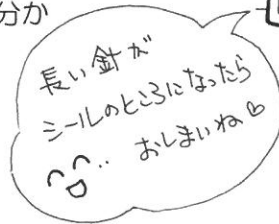 分か
長い針が
シールのところになったら
おしまいね♡